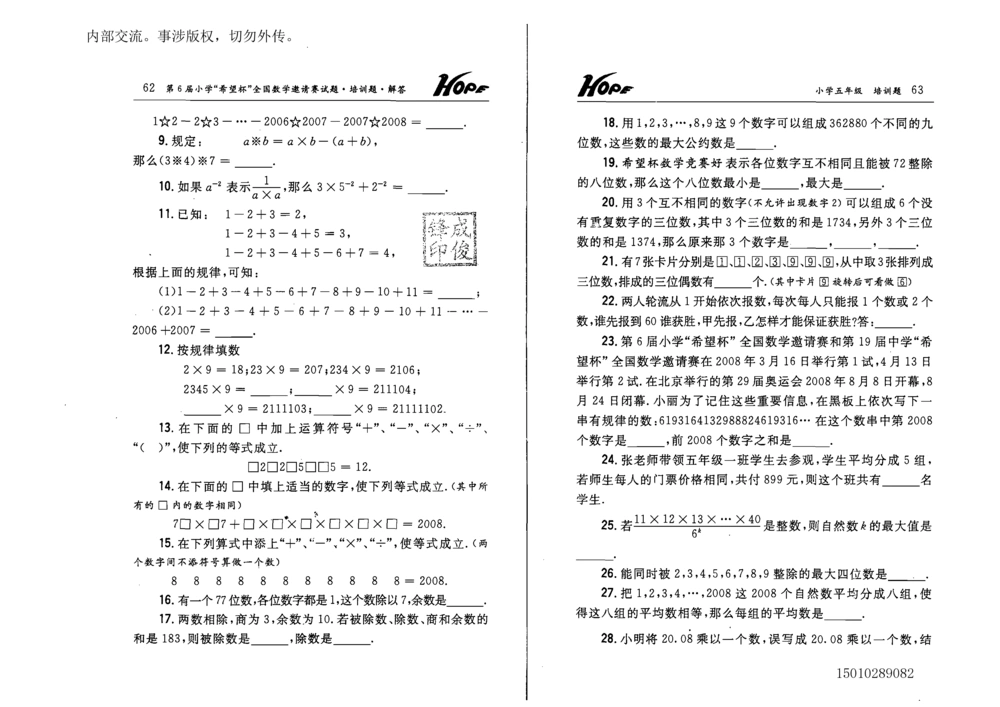 内部交流。事涉版权，切勿外传。
62 第6届小学“希望杯”全国数学邀请赛试题·培训题·解答 HOPE
1☆2－2☆3－…－2006☆2007－2007☆2008＝______.
9.规定： a※b＝a×b－(a＋b)，
那么(3※4)※7＝______.
10.如果 a⁻² 表示 1/(a×a)，那么 3×5⁻²＋2⁻²＝______.
11.已知： 1－2＋3＝2，
1－2＋3－4＋5＝3，
1－2＋3－4＋5－6＋7＝4，
根据上面的规律，可知：
(1)1－2＋3－4＋5－6＋7－8＋9－10＋11＝______；
(2)1－2＋3－4＋5－6＋7－8＋9－10＋11－…－
2006＋2007＝______.
12.按规律填数
2×9＝18；23×9＝207；234×9＝2106；
2345×9＝______；______×9＝211104；
______×9＝2111103；______×9＝21111102.
13.在下面的 □ 中加上运算符号“＋”、“－”、“×”、“÷”、
“( )”，使下列的等式成立.
□2□2□5□□5＝12.
14.在下面的 □ 中填上适当的数字，使下列等式成立.(其中所
有的 □ 内的数字相同)
7□×□7＋□×□×□×□×□×□＝2008.
15.在下列算式中添上“＋”、“－”、“×”、“÷”，使等式成立.(两
个数字间不添符号算做一个数)
8 8 8 8 8 8 8 8 8 8 8＝2008.
16.有一个77位数，各位数字都是1，这个数除以7，余数是______.
17.两数相除，商为3，余数为10.若被除数、除数、商和余数的
和是183，则被除数是______，除数是______.
成俊
印
HOPE 小学五年级 培训题 63
18.用1,2,3,…,8,9这9个数字可以组成362880个不同的九
位数，这些数的最大公约数是______.
19.希望杯数学竞赛好表示各位数字互不相同且能被72整除
的八位数，那么这个八位数最小是______，最大是______.
20.用3个互不相同的数字(不允许出现数字2)可以组成6个没
有重复数字的三位数，其中3个三位数的和是1734，另外3个三位
数的和是1374，那么原来那3个数字是______，______，______.
21.有7张卡片分别是1、1、2、3、9、9、9，从中取3张排列成
三位数，排成的三位偶数有______个.(其中卡片 9 旋转后可看做 6)
22.两人轮流从1开始依次报数，每次每人只能报1个数或2个
数，谁先报到60谁获胜，甲先报，乙怎样才能保证获胜？答：______.
23.第6届小学“希望杯”全国数学邀请赛和第19届中学“希
望杯”全国数学邀请赛在2008年3月16日举行第1试，4月13日
举行第2试.在北京举行的第29届奥运会2008年8月8日开幕，8
月24日闭幕.小丽为了记住这些重要信息，在黑板上依次写下一
串有规律的数：6193164132988824619316…在这个数串中第2008
个数字是______，前2008个数字之和是______.
24.张老师带领五年级一班学生去参观，学生平均分成5组，
若师生每人的门票价格相同，共付899元，则这个班共有______名
学生.
25.若 (11×12×13×…×40)/6ᵏ 是整数，则自然数k的最大值是
______.
26.能同时被2,3,4,5,6,7,8,9整除的最大四位数是______.
27.把1,2,3,4,…,2008这2008个自然数平均分成八组，使
得这八组的平均数相等，那么每组的平均数是______.
28.小明将20.0̇8̇乘以一个数，误写成20.08乘以一个数，结
15010289082